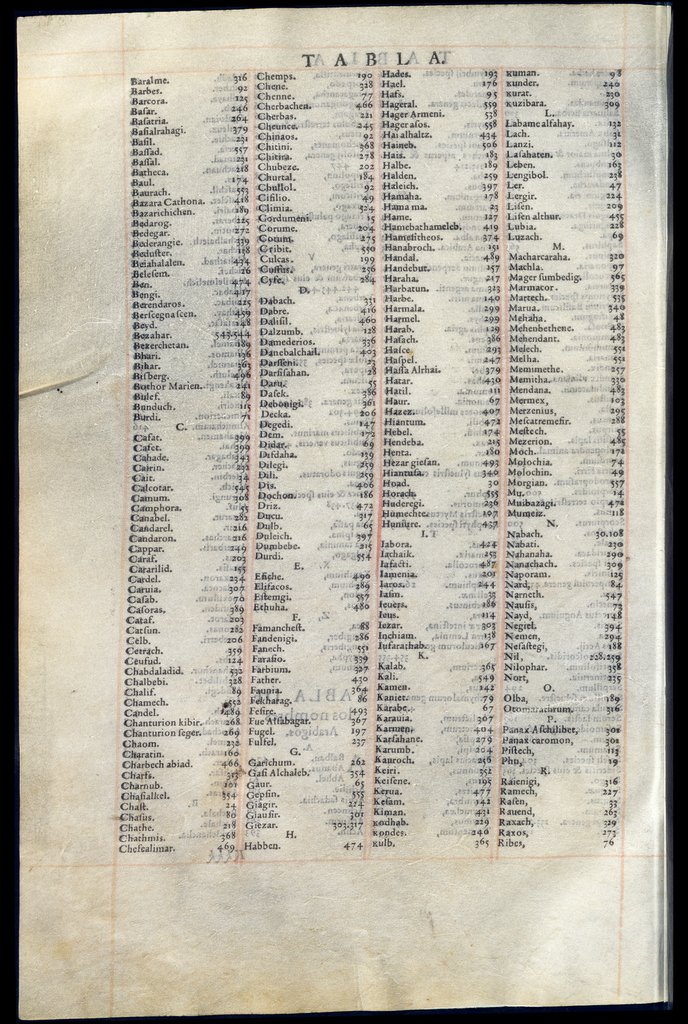 TABLA.
Baralme. 316
Barbes. 92
Barcora. 125
Basar. 246
Basatria. 264
Basialrahagi. 379
Basil. 231
Bassad. 557
Bassal. 231
Batheca. 218
Baul. 174
Baurach. 553
Bazara Cathona. 418
Bazarichichen. 189
Bedarog. 225
Bedegar. 272
Bederangie. 339
Beduster.
Beiahalalen. 434
Belesem. 26
Ben. 474
Bengi. 417
Berendaros. 225
Berscegnascen. 459
Beyd. 148
Bezahar. 543.544
Bezerchetan. 189
Bhari. 136
Bihar. 363
Bisberg. 496
Bothor Marien. 241
Bulef. 89
Bunduch. 115
Burdi. 71
C.
Cafat. 399
Cafet. 399
Cahade. 343
Cairin. 232
Cait. 34
Calcotar. 545
Camum. 308
Camphora. 55
Canabel. 282
Candarel. 216
Candaron. 216
Cappar. 249
Caraf. 203
Cararilid. 155
Cardel. 234
Caruia. 307
Casab. 70
Casoras. 389
Cataf. 203
Catsun. 282
Celb. 206
Cetrach. 359
Ceufud. 124
Chabdaladid. 532
Chalbebi. 328
Chalif. 89
Chamech. 552
Candel. 489
Chanturion kibir. 268
Chanturion seger. 269
Chaom. 232
Charatin. 160
Charbech abiad. 466
Charfs. 313
Charnub. 101
Chasialkel. 354
Chast. 24
Chasus. 80
Chathe. 218
Chathmis. 368
Chefealimar. 469
Chemps. 190
Chene. 328
Chenne. 77
Cherbachen. 466
Cherbas. 221
Cheunce. 245
Chinaos. 92
Chitini. 268
Chitira. 278
Chubeze. 202
Churtal. 184
Chussol. 92
Cifilio. 49
Climia. 524
Cordumeni. 15
Corume. 204
Cotum. 275
Cribit. 550
Culcas. 199
Cussus. 256
Cyfe. 284
D.
Dabach. 331
Dabre. 416
Dalisil. 460
Dalzumb. 128
Damederios. 336
Danebalchail. 403
Darseni. 23
Darsisahan. 28
Daru. 55
Dasek. 386
Debonigi. 361
Decka. 206
Degedi. 147
Dem. 172
Didar. 69
Difdaha. 139
Dilegi. 259
Dili. 259
Dis. 406
Dochon. 186
Driz. 472
Ducu. 317
Dulb. 65
Duleich. 397
Dumbebe. 215
Durdi. 554
E.
Efiche. 490
Elifacos. 289
Eftemgi. 557
Ethuha. 480
F.
Famanchest. 88
Fandenigi. 286
Fanech. 551
Farasio. 339
Farbium. 327
Father. 430
Faunia. 364
Fekharag. 86
Fesire. 493
Fue Alsabagar. 367
Fugel. 197
Fulfel. 237
G.
Garichum. 262
Gasi Alchaleb. 354
Gaur. 65
Gepsin. 555
Giagir. 224
Glausir. 301
Giezar. 303.317
H.
Habben. 474
Hades. 193
Hael. 176
Hafs. 95
Hageral. 559
Hager Armeni. 538
Hager asos. 558
Haralhaltz. 434
Haineb. 506
Hais. 183
Halbe. 189
Halden. 259
Haleich. 397
Hamaha. 178
Hama ma. 23
Hame. 127
Hamebathameleb. 419
Hamesitheos. 374
Hanabroch. 151
Handal. 489
Handebut. 257
Haraha. 217
Harbatun. 323
Harbe. 140
Harmala. 299
Harmel. 299
Harab. 129
Hasach. 386
Hasce. 293
Haspel. 247
Hassa Alrhai. 379
Hatar. 430
Hatil. 111
Haur. 67
Hazez. 407
Hiantum. 472
Hebel. 174
Hendeba. 215
Henta. 180
Hezar giesan. 493
Hiantusa. 340
Hoad. 30
Horach. 555
Huderegi. 236
Humechte. 197
Hunsitre. 437
I.
Iabora. 424
Iachaik. 253
Iafacti. 487
Iamenia. 201
Iaros. 244
Iasin. 33
Ieuers. 186
Ieus. 114
Iezar. 303
Inchiam. 138
Iusarathab. 267
K.
Kalab. 365
Kali. 549
Kamen. 142
Kanier. 79
Karabe. 67
Karauia. 307
Karmen. 404
Karsahane. 279
Karumb. 204
Kauroch. 256
Keiri. 352
Keisene. 195
Kerua. 477
Kesam. 142
Kiman. 431
Kodhab. 229
Kondes. 240
Kulb. 365
Kuman. 98
Kunder. 240
Kurat. 230
Kuzibara. 309
L.
Labame alfahay. 132
Lach. 31
Lanzi. 112
Lasahaten. 30
Leben. 163
Lengibol. 238
Ler. 47
Lergir. 224
Lisen. 209
Lisen althur. 455
Lubia. 228
Luzach. 69
M.
Macharcaraha. 320
Machla. 97
Mager sumbedig. 565
Marmacor. 339
Martech. 535
Marua. 340
Mehaha. 48
Mehenbethene. 483
Mehendant. 483
Melech. 551
Melha. 551
Memimethe. 257
Memitha. 330
Mendana. 483
Mermex. 103
Merzenius. 295
Mescatremefir. 288
Mestech. 55
Mezerion. 485
Moch. 172
Molochia. 74
Molochin. 49
Morgian. 557
Mu. 14
Muibazagi. 472
Mumeiz. 118
N.
Nabach. 30.108
Nabati. 230
Nahanaha. 290
Nanachach. 309
Naporam. 125
Nard. 84
Narneth. 547
Nausis. 73
Nayd. 148
Negrel. 394
Nemen. 294
Nesastegi. 188
Nil. 228.259
Nilophar. 358
Nort. 235
O.
Olba. 189
Otomatrarum. 316
P.
Panax Aschilibet. 301
Panax caromon. 301
Pistech. 113
Phn. 19
R.
Raienigi. 316
Ramech. 227
Rasen. 33
Rauend. 263
Raxach. 329
Raxos. 273
Ribes, 76